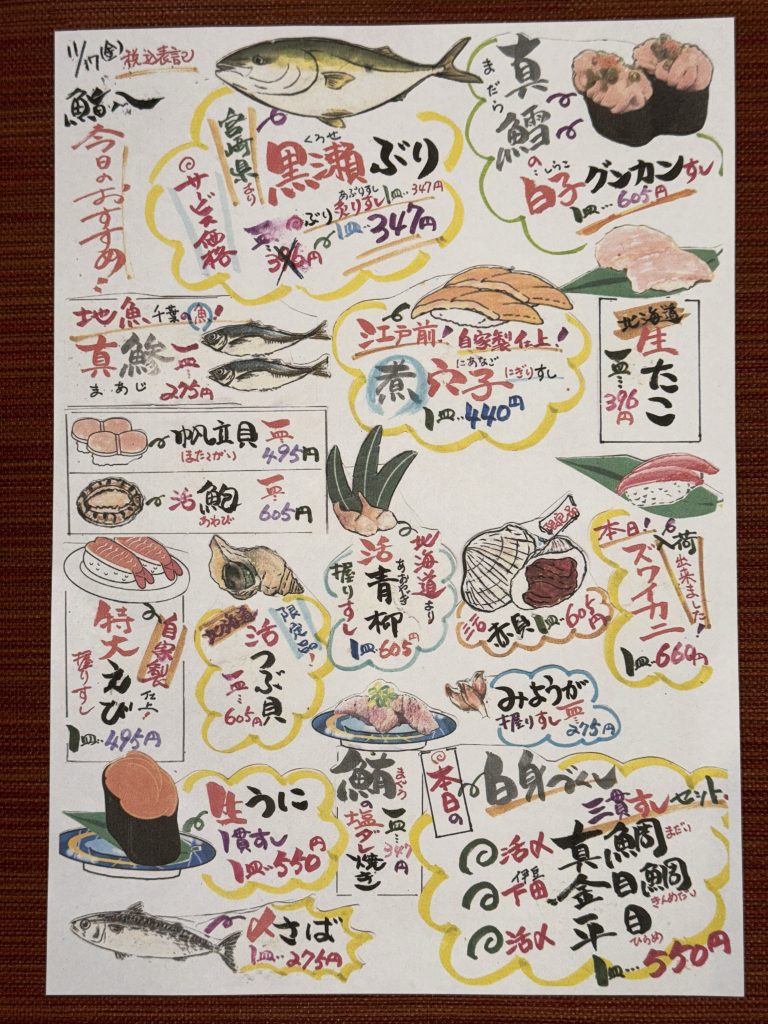 11/17(金)
税込表記
今日のおすすめ!
宮崎県より
くろせ
黒瀬ぶり
サービス価格
あぶりすし
ぶり炙りすし 1皿…347円
一皿… 396円
1皿…347円
まだら
真鱈の
しらこ
白子グンカンすし
1皿…605円
地魚 千葉の魚!
真鯵
まあじ
一皿…275円
江戸前! 自家製仕上!
にあなご
煮穴子にぎりすし
1皿…440円
北海道
生たこ
一皿…396円
帆立貝
ほたてがい
一皿…495円
活鮑
あわび
一皿…605円
北海道より
活青柳
あおやぎ
握りすし
1皿…605円
限定品
活赤貝 1皿…605円
本日!入荷出来ました!
ズワイカニ
1皿…660円
自家製仕上!
特大えび
握りすし
1皿…495円
限定品!
北海道
活つぶ貝
一皿…605円
みょうが
握りすし 一皿…275円
生うに
1貫すし
1皿…550円
まぐろ
鮪の塩ダレ焼き
一皿…347円
本日の
白身づくし
三貫すしセット
活〆 真鯛 まだい
伊豆
下田 金目鯛 きんめだい
活〆 平目 ひらめ
1皿…550円
〆さば
1皿…275円